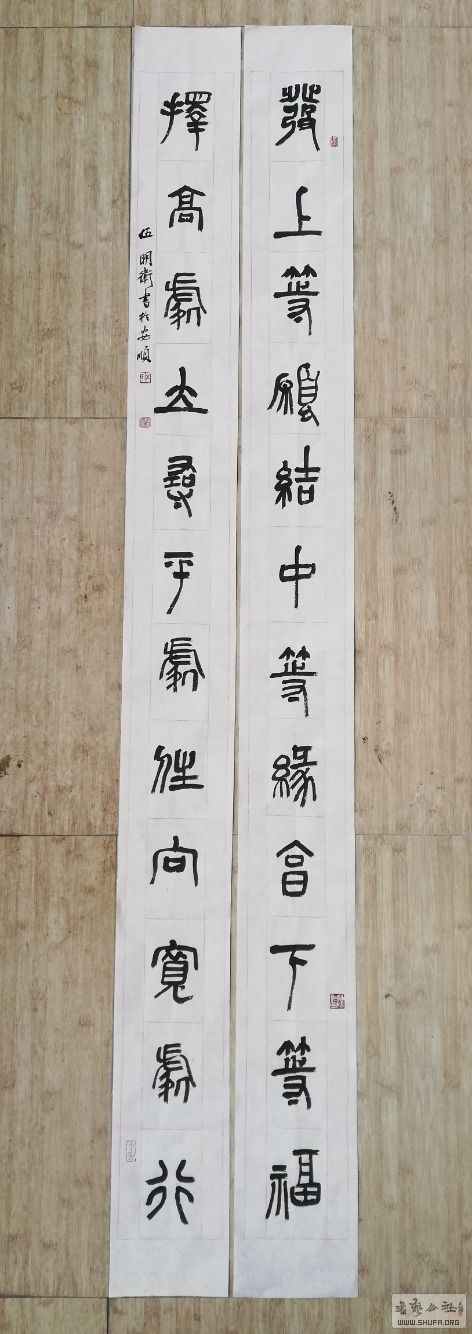 發上等願結中等緣享下等福
擇高處立尋平處住向寬處行
伍明衛書於安順
書藝公社
WWW.SHUFA.ORG